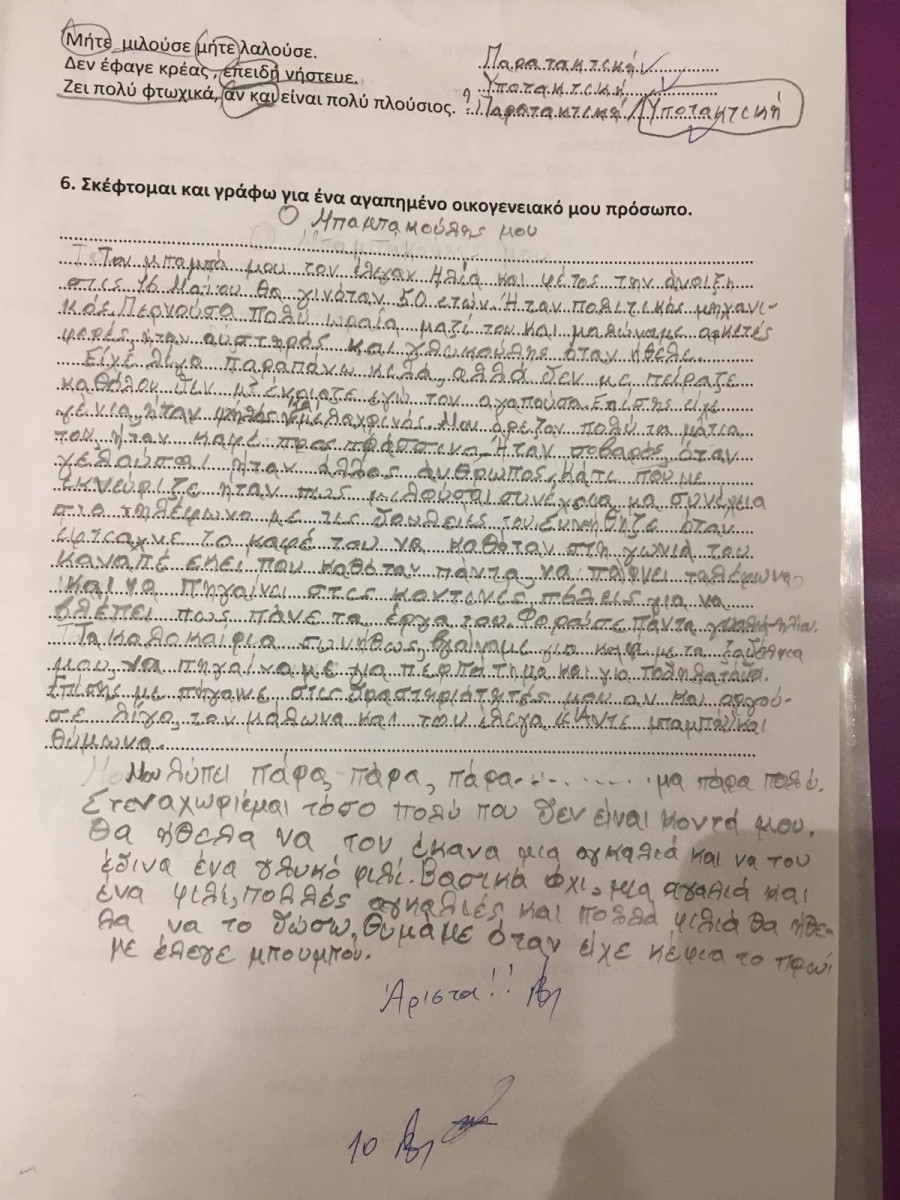 Μήτε μιλούσε μήτε λαλούσε. Παρατακτική
Δεν έφαγε κρέας, επειδή νήστευε. Υποτακτική
Ζει πολύ φτωχικά, αν και είναι πολύ πλούσιος. ? Παρατακτική / Υποτακτική
6. Σκέφτομαι και γράφω για ένα αγαπημένο οικογενειακό μου πρόσωπο.
Ο Μπαμπακούλης μου
Τον μπαμπά μου τον έλεγαν Ηλία και φέτος την άνοιξη
στις 16 Μαΐου θα γινόταν 50 ετών. Ήταν πολιτικός μηχανι-
κός. Περνούσα πολύ ωραία μαζί του και μαλώναμε αρκετές
φορές, ήταν αυστηρός και γλυκούλης όταν ήθελε.
Είχε λίγα παραπάνω κιλά, αλλά δεν με πείραζε
καθόλου δεν μ' ένοιαζε εγώ τον αγαπούσα. Επίσης είχε
γένια, ήταν ψηλός και μελαχρινός. Μου άρεζαν πολύ τα μάτια
του ήταν καφέ προς πράσινα. Ήταν σοβαρός, όταν
γελούσε ήταν άλλος άνθρωπος, κάτι που με
εκνεύριζε ήταν πως μιλούσαι συνέχεια μα συνέχεια
στο τηλέφωνο με τις δουλειές του. Συνήθιζε όταν
έφτιαχνε το καφέ του να καθόταν στη γωνιά του
καναπέ εκεί που καθόταν πάντα, να παίρνει τηλέφωνα,
και να πηγαίνει στις κοντινές πόλεις για να
βλέπει πως πάνε τα έργα του. Φορούσε πάντα γυαλιά ηλίου.
Τα καλοκαίρια συνήθως βγαίναμε για καφέ με τα ξαδέλφια
μου, να πηγαίναμε για περπάτημα και για ποδηλατάδα.
Επίσης με πήγαινε στις δραστηριότητές μου αν και αργού-
σε λίγο, τον μάλωνα και του έλεγα «Άντε μπαμπά» και
θύμωνα.
Μου λύπει πάρα, πάρα, πάρα- . . . . . . . . μα πάρα πολύ.
Στεναχωριέμαι τόσο πολύ που δεν είναι κοντά μου.
Θα ήθελα να τον έκανα μια αγκαλιά και να του
έδινα ένα γλυκό φιλί. Βασικά όχι, μια αγαλιά και
ένα φιλί, πολλές αγκαλιές και πολλά φιλιά θα ήθε-
λα να το δώσω. Θυμάμε όταν είχε κέφια το πρωί
με έλεγε μπουμπού.
Άριστα!!
10